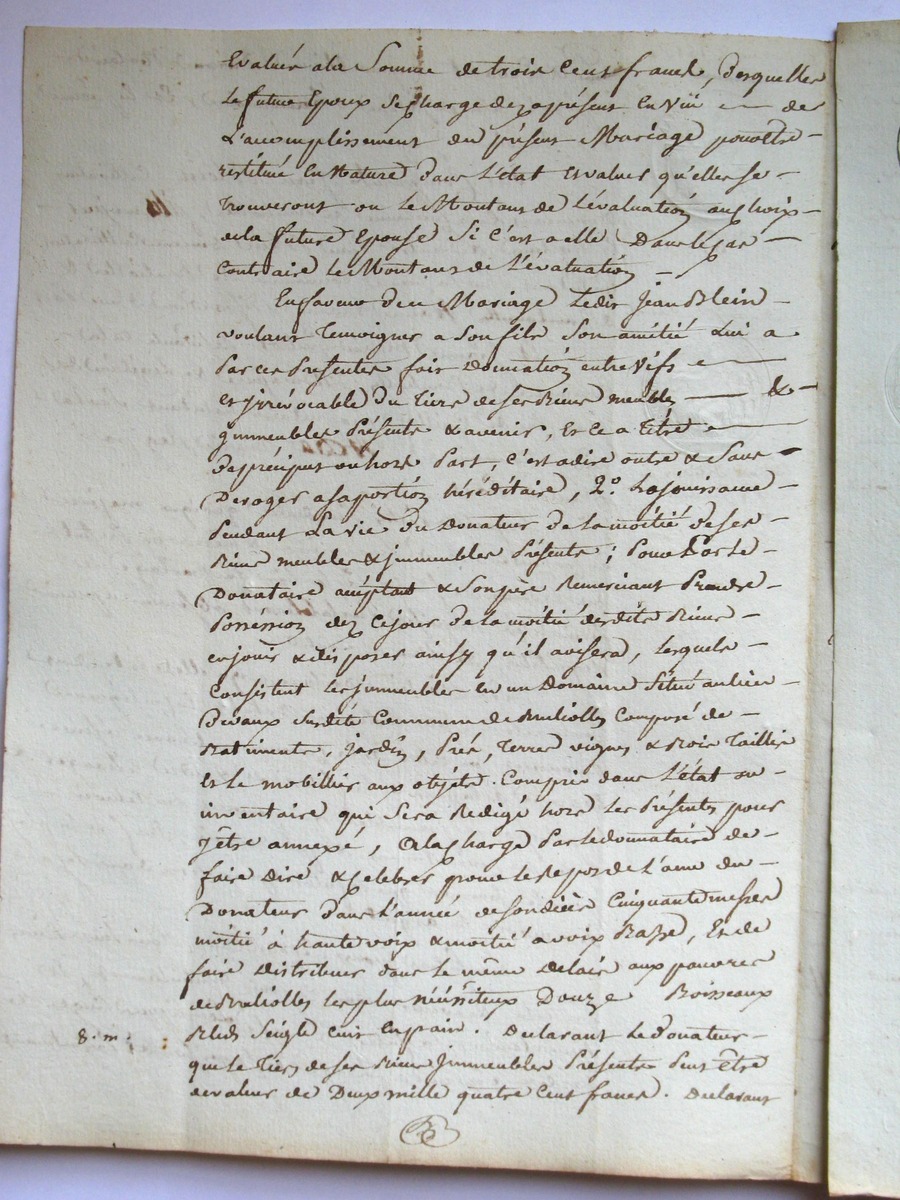 Evalués a la Somme de trois Cent francs, desquelles
Le futur Epoux se charge dez a présent en vüe de
L'accomplissement du présent Mariage pour être
restitué en Nature dans L'état et valeur qu'elles se
trouveront ou le Montant de L'évaluation au choix
de la future Epouse si C'est a elle dans le cas
Contraire le Montant de L'évaluation
En faveur du Mariage Ledit Jean Blein
voulant temoigner a Son fils Son amitié Lui a
Par ces Présentes fait Donnation entre Vifs
et jrrévocable du tiers de ses Biens meubles &
jmmeubles Présents & avenir, et ce a titre
de préciput ou hors Part, C'est a dire outre & Sans
Deroger a sa portion héréditaire, 2.º La jouissance
Pendant La vie du Donateur de la moitié de ses
Biens meubles & jmmeubles Présents; Pour Par Le
Donataire acceptant & Son père Remerciant Prendre
Possession dez ce jour de la moitié desdits Biens
en jouir & disposer ainsy qu'il avisera, lesquels
Consistent les jmmeubles en un Domaine Situé au lieu
Devaux Susdite Commune de Composé de
Batiments, jardin, Prés, terres vignes & Bois Taillis
Et Le mobillier aux objets Compris dans L'état ou
inventaire qui Sera Redigé hors les Présentes pour
y être annexé, a la charge Par le donnataire de
faire dire & Celebrer pour le Repos de L'ame du
Donateur dans L'année de son décès Cinquante messes
moitié à haute voix & moitié a voix Basse, Et de
faire distribuer dans le même delais aux pauvres
de les plus nécéssiteux Douze Boisseaux
8. m. Bled Seigle cuit en pain. Declarant Le Donateur
que le tiers de ses Biens jmmeubles Présents Peut être
de valeur de Deux mille quatre Cent francs. Declarant